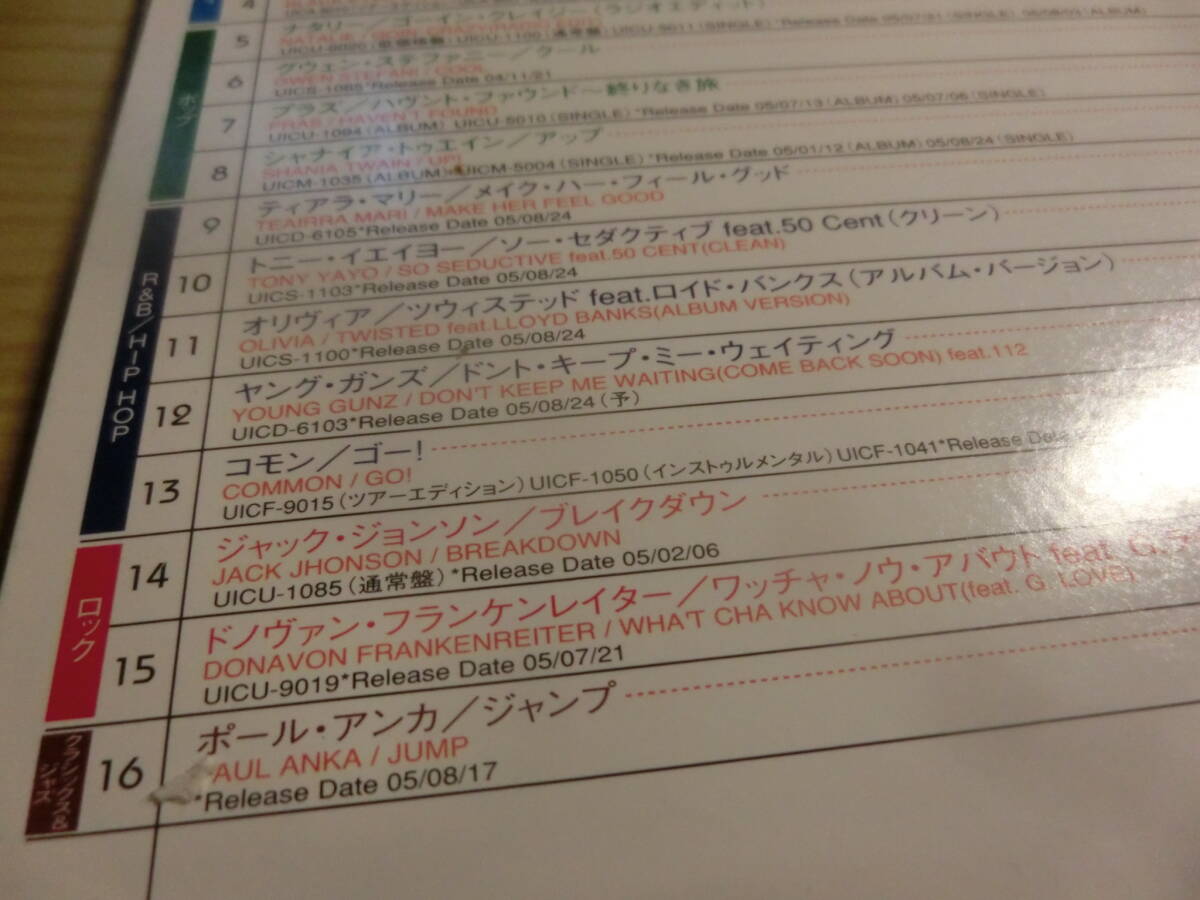 4
ポップ
5
ナタリー/ゴーイン・クレイジー(ラジオエディット)
NATALIE / GOIN' CRAZY
6
グウェン・ステファニー/クール
GWEN STEFANI / COOL
UICS-1085*Release Date 04/11/21
7
プラズ/ハヴント・ファウンド〜終りなき旅
PRAS / HAVEN'T FOUND
UICU-1094(ALBUM) UICU-5010(SINGLE) *Release Date 05/07/13(ALBUM) 05/07/06(SINGLE)
8
シャナイア・トゥエイン/アップ
SHANIA TWAIN / UP!
UICM-1035(ALBUM) UICM-5004(SINGLE)*Release Date 05/01/12(ALBUM) 05/08/24(SINGLE)
R&B/HIP HOP
9
ティアラ・マリー/メイク・ハー・フィール・グッド
TEAIRRA MARI / MAKE HER FEEL GOOD
UICD-6105*Release Date 05/08/24
10
トニー・イエイヨー/ソー・セダクティブ feat.50 Cent(クリーン)
TONY YAYO / SO SEDUCTIVE feat.50 CENT(CLEAN)
UICS-1103*Release Date 05/08/24
11
オリヴィア/ツウィステッド feat.ロイド・バンクス(アルバム・バージョン)
OLIVIA / TWISTED feat.LLOYD BANKS(ALBUM VERSION)
UICS-1100*Release Date 05/08/24
12
ヤング・ガンズ/ドント・キープ・ミー・ウェイティング
YOUNG GUNZ / DON'T KEEP ME WAITING(COME BACK SOON) feat.112
UICD-6103*Release Date 05/08/24(予)
13
コモン/ゴー!
COMMON / GO!
UICF-9015(ツアーエディション) UICF-1050(インストゥルメンタル) UICF-1041*Release Date
ロック
14
ジャック・ジョンソン/ブレイクダウン
JACK JHONSON / BREAKDOWN
UICU-1085(通常盤)*Release Date 05/02/06
15
ドノヴァン・フランケンレイター/ワッチャ・ノウ・アバウト feat. G.ラ
DONAVON FRANKENREITER / WHA'T CHA KNOW ABOUT(feat. G. LOVE)
UICU-9019*Release Date 05/07/21
クラシックス&
ジャズ
16
ポール・アンカ/ジャンプ
AUL ANKA / JUMP
*Release Date 05/08/17